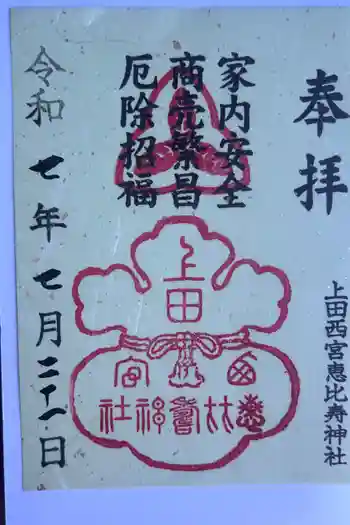 奉拝
上田西宮恵比寿神社
家内安全
商売繁昌
厄除招福
上田
西宮
恵比寿神社
令和七年七月二十一日